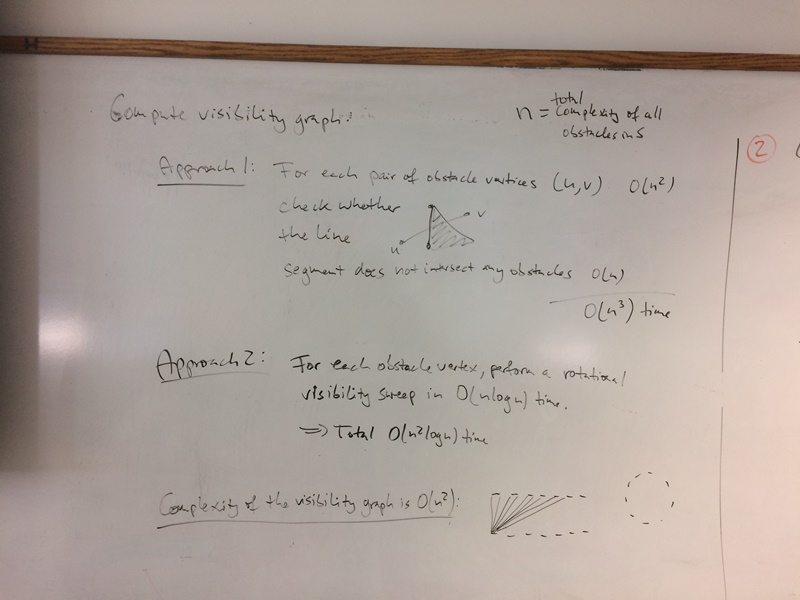 Compute visibility graph:
n = total complexity of all
obstacles in S
2
Approach 1: For each pair of obstacle vertices (u,v) O(n²)
check whether
the line
u
v
segment does not intersect any obstacles O(n)
O(n³) time
Approach 2: For each obstacle vertex, perform a rotational
visibility sweep in O(n log n) time.
⇒ Total O(n² log n) time
Complexity of the visibility graph is O(n²):